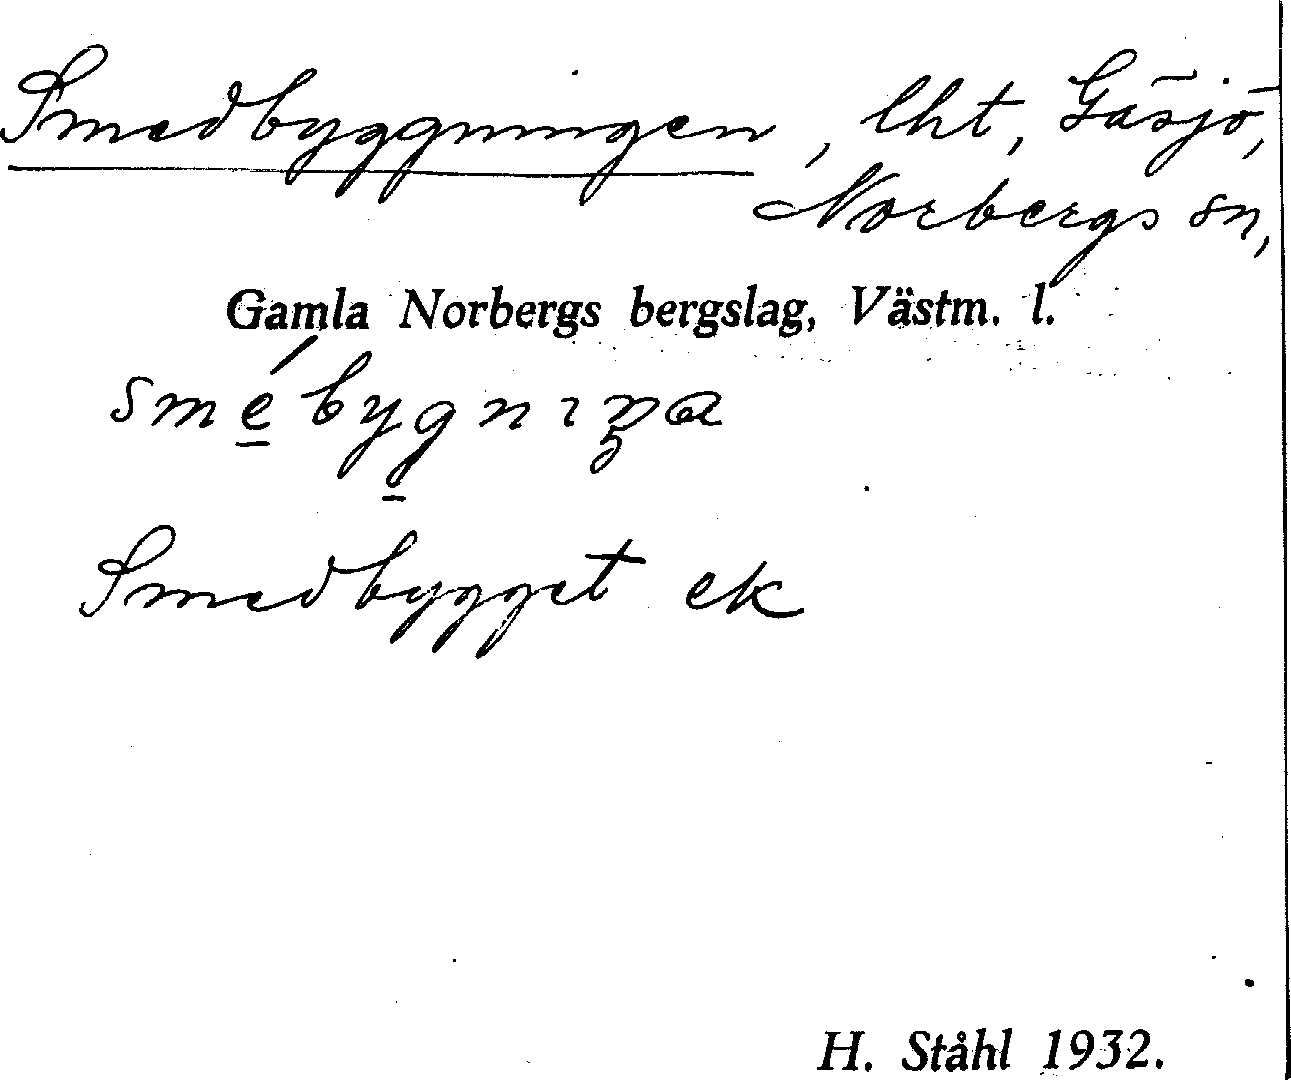 Smedbyggningen, lht, Gäsjö,
Norbergs sn,
Gamla Norbergs bergslag, Västm. l.
smébygnıŋa
Smedbygget ek
H. Ståhl 1932.